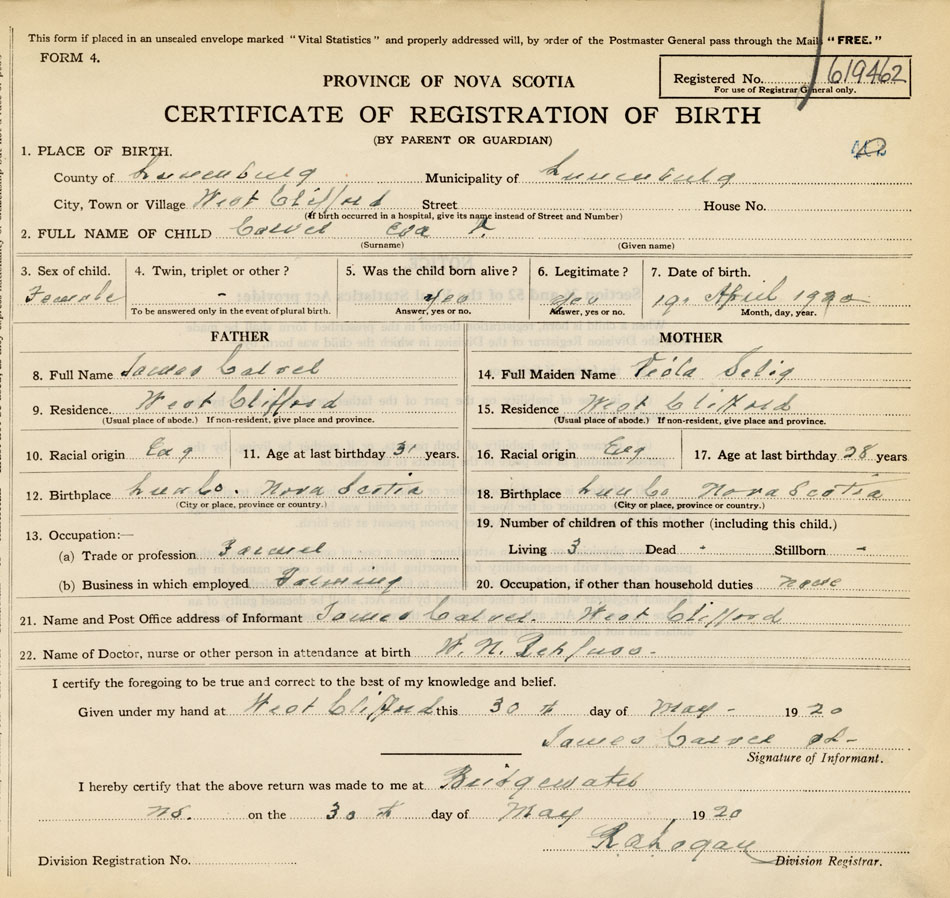 This form if placed in an unsealed envelope marked "Vital Statistics" and properly addressed will, by order of the Postmaster General pass through the Mail "FREE."
FORM 4.
Registered No. 619462
For use of Registrar General only.
PROVINCE OF NOVA SCOTIA
CERTIFICATE OF REGISTRATION OF BIRTH
(BY PARENT OR GUARDIAN)
1. PLACE OF BIRTH.
County of Lunenburg Municipality of Lunenburg
City, Town or Village West Clifford Street House No.
(If birth occurred in a hospital, give its name instead of Street and Number)
2. FULL NAME OF CHILD Carver Eva
(Surname) (Given name)
3. Sex of child. 4. Twin, triplet or other? 5. Was the child born alive? 6. Legitimate? 7. Date of birth.
Female - Yes Yes 19, April 1920
To be answered only in the event of plural birth. Answer, yes or no. Answer, yes or no. Month, day, year.
FATHER MOTHER
8. Full Name James Carver 14. Full Maiden Name Viola Selig
9. Residence. West Clifford 15. Residence West Clifford
(Usual place of abode.) If non-resident, give place and province. (Usual place of abode.) If non-resident, give place and province.
10. Racial origin Eng 11. Age at last birthday 31 years. 16. Racial origin Eng 17. Age at last birthday 28 years
12. Birthplace Lun Co. Nova Scotia 18. Birthplace Lun Co Nova Scotia
(City or place, province or country.) (City or place, province or country.)
13. Occupation:— 19. Number of children of this mother (including this child.)
(a) Trade or profession Farmer Living 3 Dead - Stillborn -
(b) Business in which employed Farming 20. Occupation, if other than household duties none
21. Name and Post Office address of Informant James Carver. West Clifford
22. Name of Doctor, nurse or other person in attendance at birth W. N. Rehfuss.
I certify the foregoing to be true and correct to the best of my knowledge and belief.
Given under my hand at West Clifford this 30th day of May - 1920
James Carver
Signature of Informant.
I hereby certify that the above return was made to me at Bridgewater
NS. on the 30th day of May 1920
Division Registration No. Division Registrar.